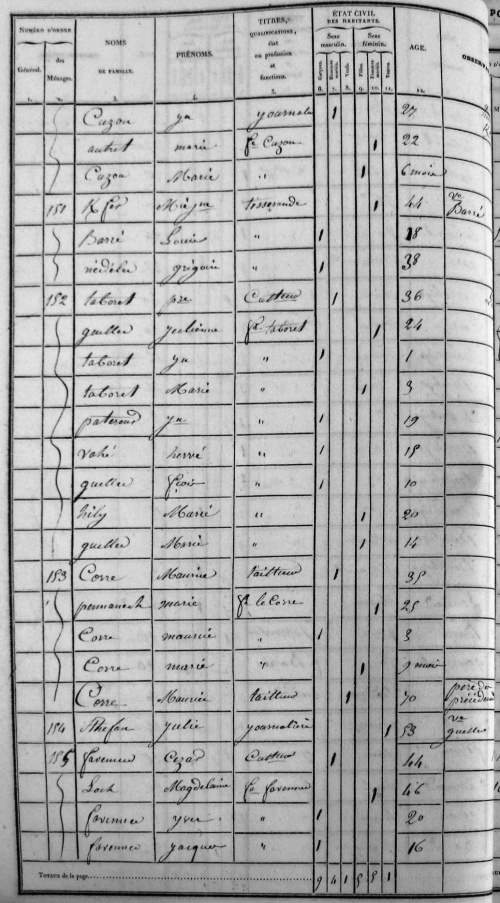 NUMÉRO D'ORDRE
Général.
des Ménages.
NOMS
DE FAMILLE.
PRÉNOMS.
TITRES,
QUALIFICATIONS,
état
ou profession
et
fonctions.
ÉTAT CIVIL
DES HABITANTS.
Sexe masculin.
Sexe féminin.
Garçons.
Hommes mariés.
Veufs.
Filles.
Femmes mariées.
Veuves.
AGE.
1. 2. 3. 4. 5. 6. 7. 8. 9. 10. 11. 12.
Cazou yn 1 27
autret marie fe Cazou 1 22
Cazou Marie " 1 6 mois
151 K/fer tisserande 1 44 ve Barré
Barré Louis " 1 18
nédélec grégoire " 1 38
152 taboret pre Cultteur 1 36
guellec julienne fe taboret 1 24
taboret yn " 1 1
taboret Marie " 1 3
yn " 1 19
hervé " 1 15
guellec fçois " 1 10
hily Marie " 1 20
guellec Marie " 1 14
153 Corre Maurice tailleur 1 35
penmanech marie fe le Corre 1 25
Corre maurice " 1 3
Corre marie " 1 9 mois
Corre Maurice tailleur 1 70 pere du précédent
154 Sthefan julie journalière 1 53 ve guellec
155 favennec Cezar Cultteur 1 44
Loch Magdelaine fe favennec 1 46
favennec yves " 1 20
favennec jacques " 1 16
TOTAUX de la page. 9 4 1 5 5 1